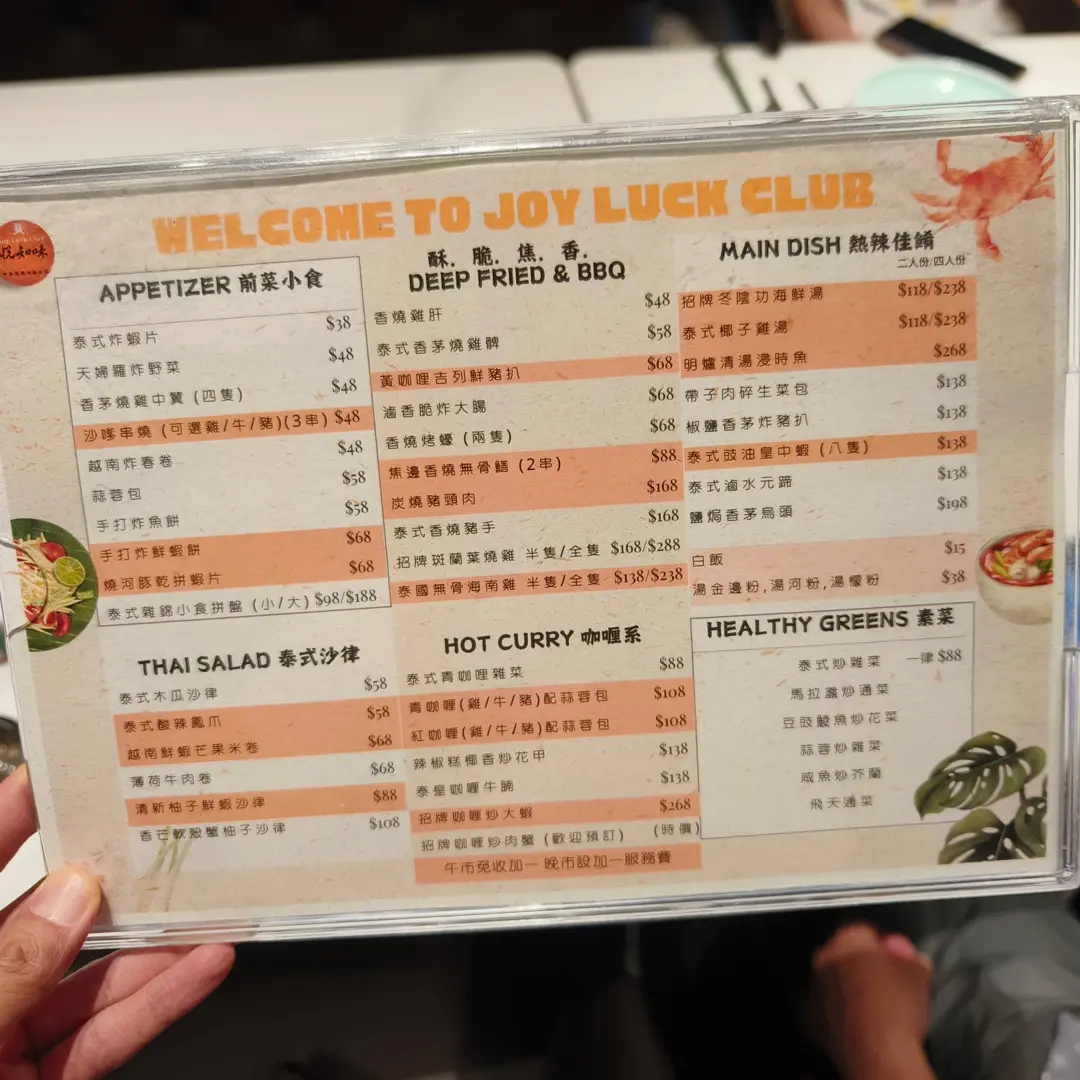 WELCOME TO JOY LUCK CLUB
Joy Luck Club
悅知味
APPETIZER 前菜小食
泰式炸蝦片 $38
天婦羅炸野菜 $48
香茅燒雞中翼 (四隻) $48
沙嗲串燒 (可選雞/牛/豬)(3串) $48
越南炸春卷 $48
蒜蓉包 $58
手打炸魚餅 $58
手打炸鮮蝦餅 $68
燒河豚乾拼蝦片 $68
泰式雜錦小食拼盤 (小/大) $98/$188
THAI SALAD 泰式沙律
泰式木瓜沙律 $58
泰式酸辣鳳爪 $58
越南鮮蝦芒果米卷 $68
薄荷牛肉卷 $68
清新柚子鮮蝦沙律 $88
香芒軟殼蟹柚子沙律 $108
酥. 脆. 焦. 香.
DEEP FRIED & BBQ
香燒雞肝 $48
泰式香茅燒雞髀 $58
黃咖喱吉列鮮豬扒 $68
滷香脆炸大腸 $68
香燒烤蠔 (兩隻) $68
焦邊香燒無骨鱔 (2串) $88
炭燒豬頸肉 $168
泰式香燒豬手 $168
招牌斑蘭葉燒雞 半隻/全隻 $168/$288
泰國無骨海南雞 半隻/全隻 $138/$238
HOT CURRY 咖喱系
泰式青咖喱雜菜 $88
青咖喱(雞/牛/豬)配蒜蓉包 $108
紅咖喱(雞/牛/豬)配蒜蓉包 $108
辣椒糕椰香炒花甲 $138
泰皇咖喱牛腩 $138
招牌咖喱炒大蝦 $268
招牌咖喱炒肉蟹 (歡迎預訂) (時價)
午市免收加一 晚市設加一服務費
MAIN DISH 熱辣佳餚
二人份/四人份
招牌冬陰功海鮮湯 $118/$238
泰式椰子雞湯 $118/$238
明爐清湯浸時魚 $268
帶子肉碎生菜包 $138
椒鹽香茅炸豬扒 $138
泰式豉油皇中蝦 (八隻) $138
泰式滷水元蹄 $138
鹽焗香茅烏頭 $198
白飯 $15
湯金邊粉,湯河粉,湯檬粉 $38
HEALTHY GREENS 素菜
泰式炒雜菜 一律 $88
馬拉盞炒通菜
豆豉鯪魚炒花菜
蒜蓉炒雜菜
咸魚炒芥蘭
飛天通菜